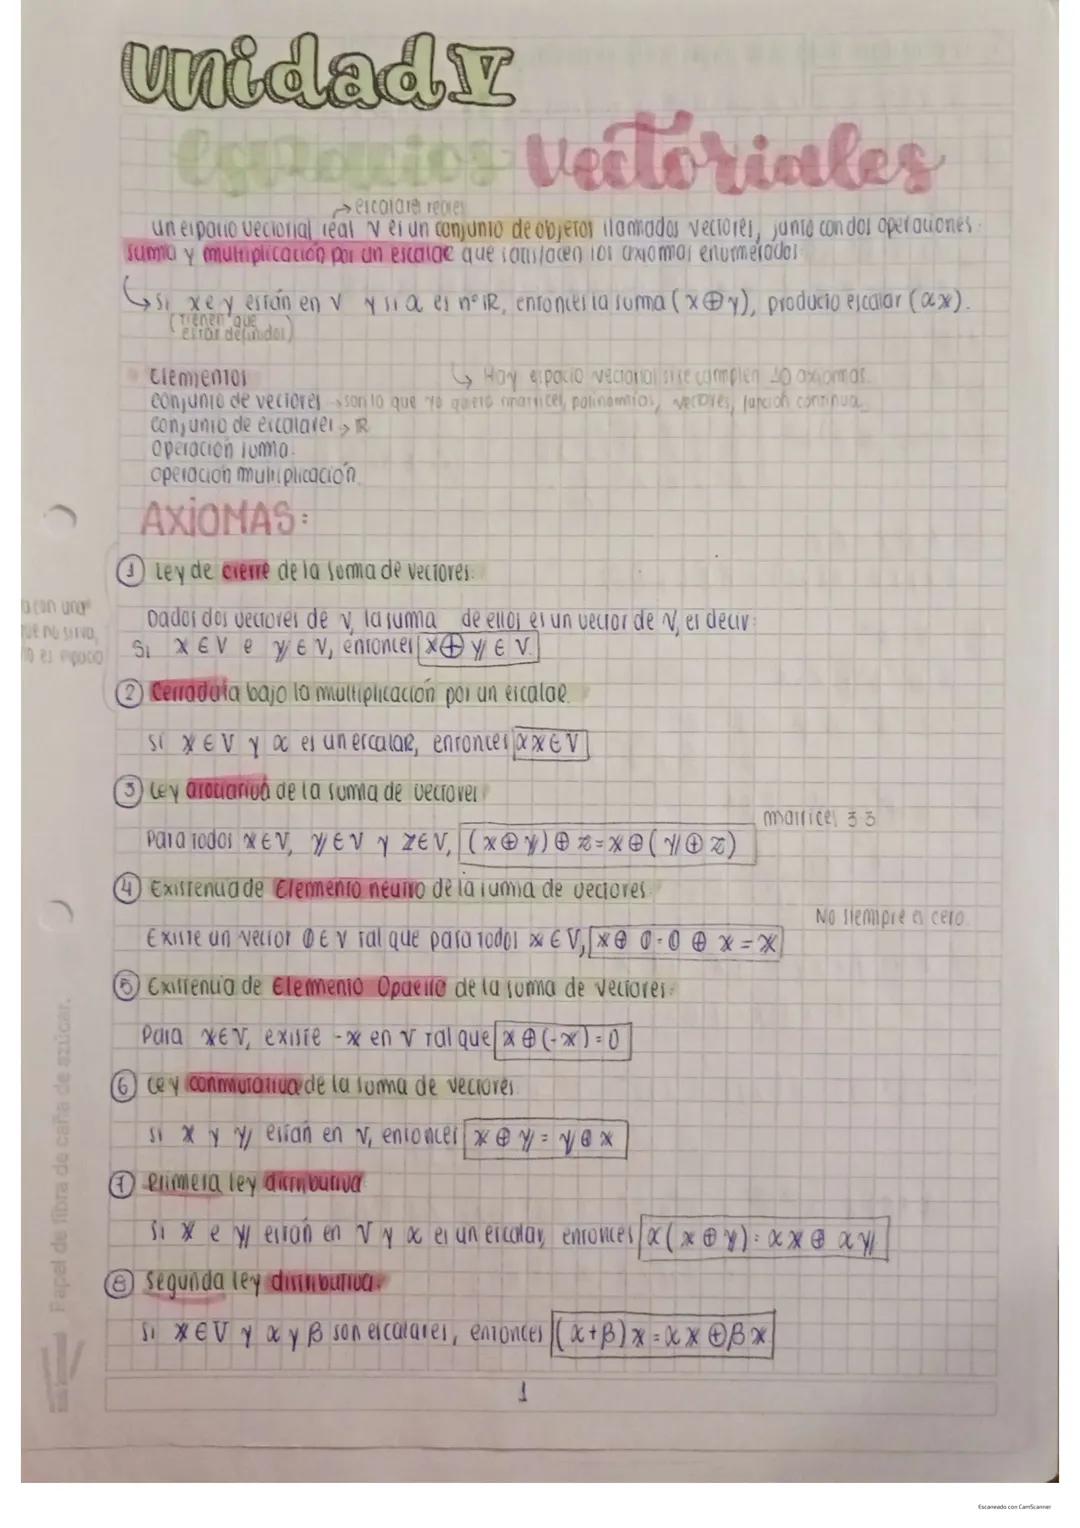 Unidad V
Espacios Vectoriales
→ escalares reales
Un espacio vectorial real V es un conjunto de objetos llamados vectores, junto con dos operaciones
suma y multiplicación por un escalar que satisfacen los axiomas enumerados
↳ Si x e y están en V y si α es nº IR, entonces la suma (x⊕y), producto escalar (αx).
(Tienen que
estar definidos)
↳ Hay espacio vectorial si se cumplen 10 axiomas.
Elementos
conjunto de vectores → son lo que yo quiero matrices, polinomios, vectores, función continua
conjunto de escalares → IR
Operación suma.
operación multiplicación
AXIOMAS:
① Ley de cierre de la suma de vectores.
Dados dos vectores de V, la suma de ellos es un vector de V, es decir:
Si x ∈ V e y ∈ V, entonces x⊕y ∈ V.
② Cerradura bajo la multiplicación por un escalar.
Si x ∈ V y α es un escalar, entonces αx ∈ V
③ Ley asociativa de la suma de vectores
matrices 3 3
Para todos x∈V, y∈V y z∈V, (x⊕y)⊕z=x⊕(y⊕z)
④ Existencia de Elemento neutro de la suma de vectores
No siempre es cero.
Existe un vector 0∈V tal que para todos x∈V, x⊕0=0⊕x=x
⑤ Existencia de Elemento Opuesto de la suma de vectores.
Para x∈V, existe -x en V tal que x⊕(-x)=0
⑥ Ley conmutativa de la suma de vectores
Si x y y están en V, entonces x⊕y=y⊕x
⑦ Primera ley distributiva
Si x e y están en V y α es un escalar, entonces α(x⊕y)=αx⊕αy
⑧ Segunda ley distributiva
Si x∈V y α y β son escalares, entonces (α+β)x=αx⊕βx
1
Papel de fibra de caña de azúcar.
Escaneado con CamScanner